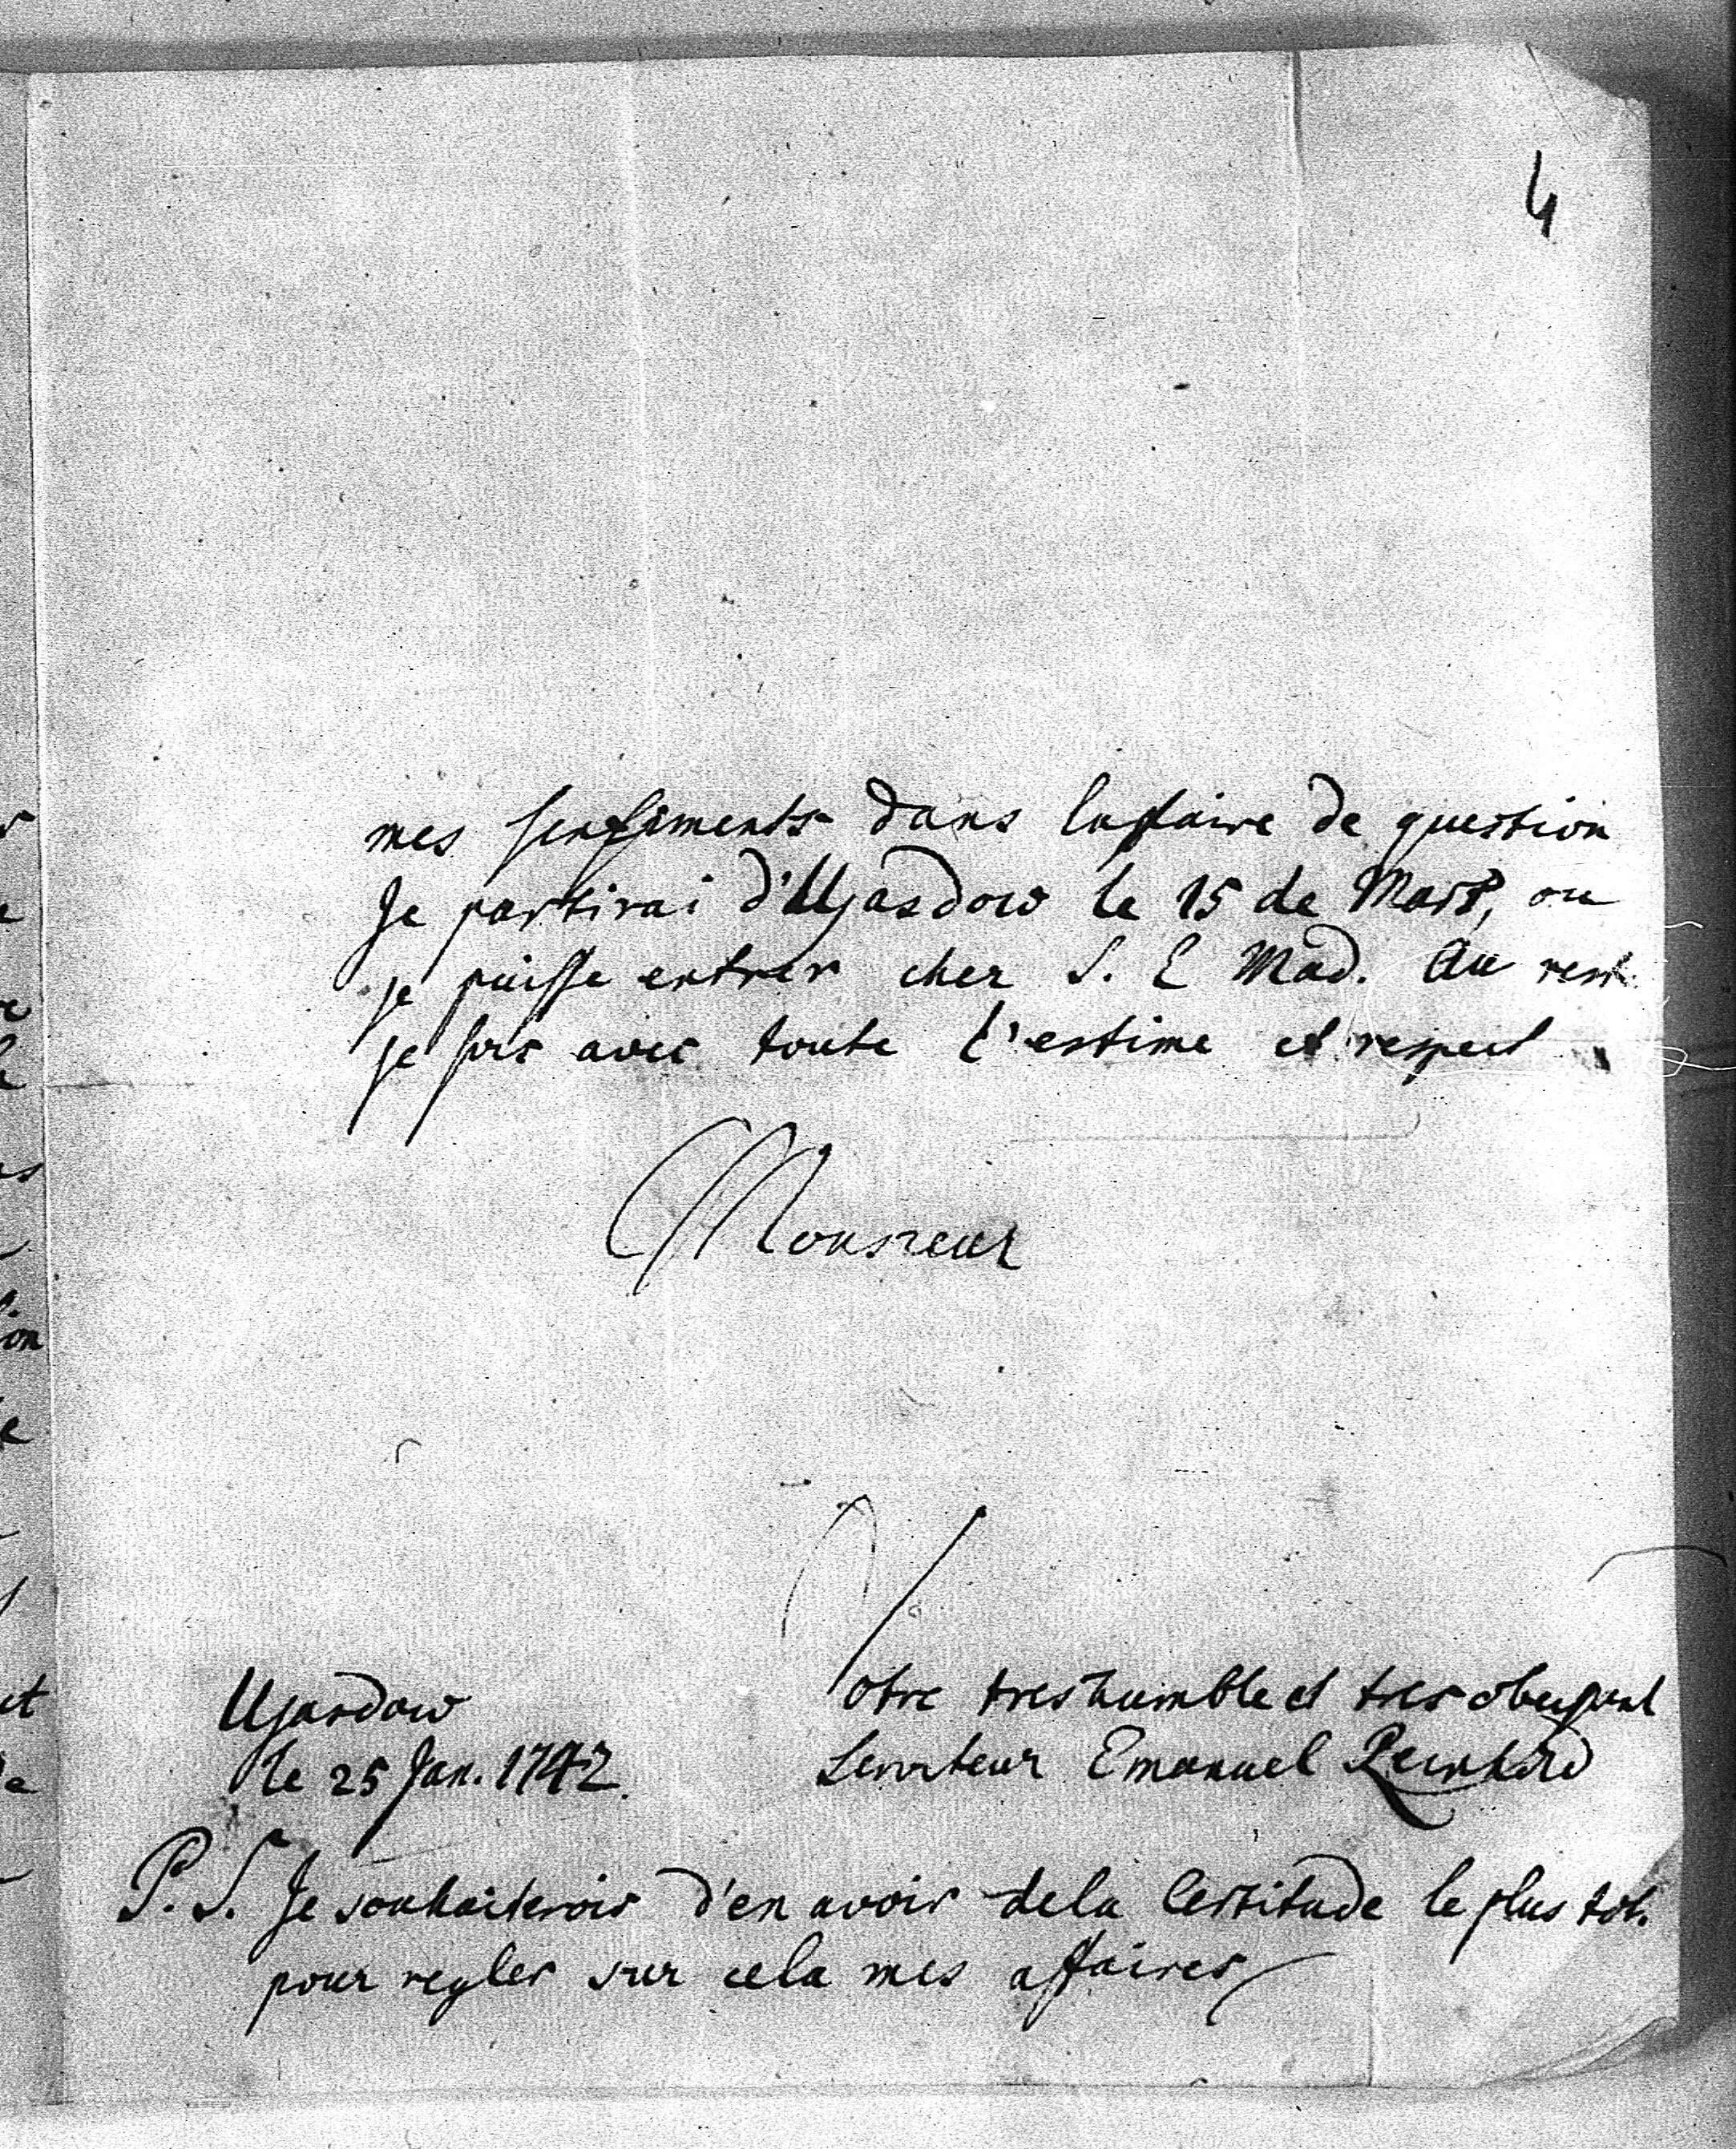 4
mes sentiments dans l'affaire de question
Je partirai d'Ujasdow le 15 de Mars, ou
je puisse entrer chez S. E Mad. Au rest
je suis avec toute l'estime et respect
Monsieur
Votre tres humble et tres obeysant
Ujasdow
Serviteur Emanuel Reinhard
le 25 Jan. 1742.
P. S. Je souhaiterois d'en avoir dela Certitude le plus tot.
pour regler sur cela mes affaires